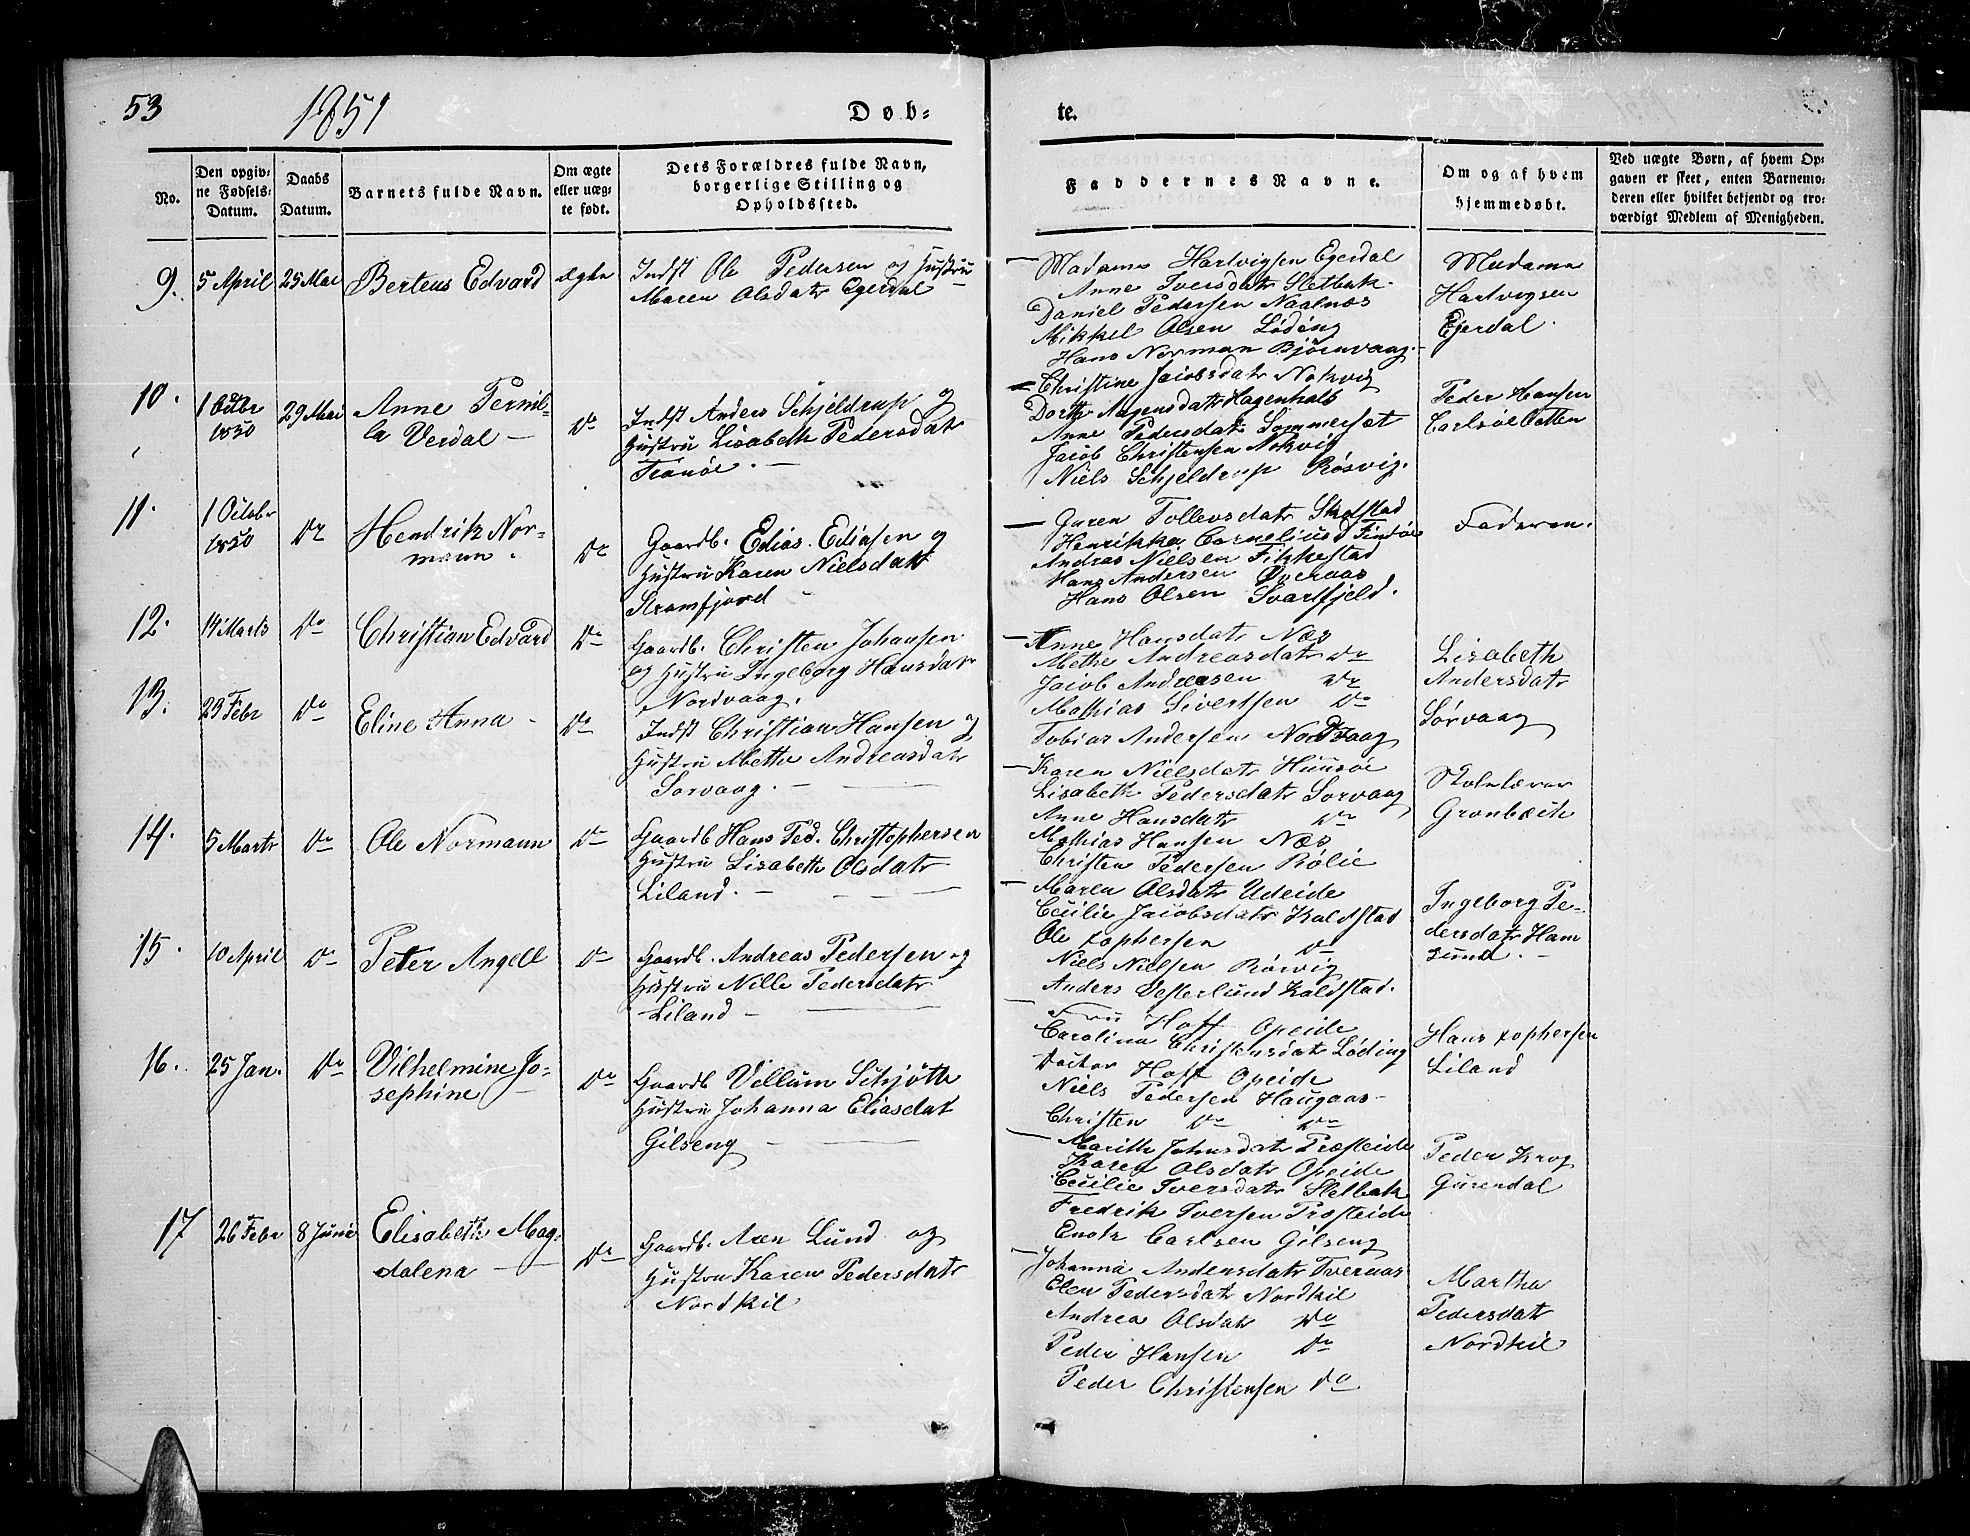 53
1851
Døb-
te.
No.
Den opgiv-
ne Fødsels-
Datum.
Daabs
Datum.
Barnets fulde Navn.
Om ægte
eller uæg-
te født.
Dets Forældres fulde Navn,
borgerlige Stilling og
Opholdssted.
Faddernes Navne.
Om og af hvem
hjemmedøbt.
Ved uægte Børn, af hvem Op-
gaven er skeet, enten Barnemo-
deren eller hvilket bekjendt og tro-
værdigt Medlem af Menigheden.
9.
5 April
25 Mai
Berteus Edvard
ægte
Indst Ole Pedersen og Hustru
Maren Olsdatr Egerdal
Madame Hartvigsen Egerdal
Anne Iversdatr Sletbak
Daniel Pedersen Naalnæs
Mikkel Olsen Løding
Hans Norman Bjørnvaag
Madame
Hartvigsen
Ejerdal.
10.
1 Octbr
1850
29 Mai
Anne Pernil-
la Verdal
Do
Indst Anders Schjeldrup og
Hustru Lisabeth Pedersdatr
Tranøe.
Christine Jacobsdatr Nokvig
Dorth Aagensdatr Hagenhals
Anne Pedersdatr Sommerset
Jacob Christensen Nokvig
Niels Schjeldrup Røsvig.
Peder Hansen
Carlsøe Vatten
11.
1 Octobr
1850
Do
Hendrik Nor-
mann.
Do
Gaardb. Edias Ediasen og
Hustru Karen Nielsdatr
Stromfjord
Guren Tollevsdatr Skafstad
Henrikka Corneliusd Finøe
Andreas Nielsen Fikkestad
Hans Andersen Qveraas
Hans Olsen Svartfjeld.
Faderen.
12.
14 Marts
Do
Christian Edvard
Do
Gaardb. Christen Johansen
og Hustru Ingeborg Hansdatr
Nordvaag.
Anne Hansdatr Næs
Mette Andreasdatr Do
Jacob Andersen Do
Mathias Sivertsen Do
Tobias Andersen Nordvaag
Lisabeth
Andersdatr
Sørvaag
13.
23 Febr
Do
Eline Anna
Do
Indst Christian Hansen og
Hustru Mette Andreasdatr
Sorvaag.
Karen Nielsdatr Huusøe
Lisabeth Pedersdatr Sorvaag
Anne Hansdatr Do
Mathias Hansen Næs
Christen Pedersen Rølie
Skolelærer
Gronbech
14.
5 Marts
Do
Ole Normann
Do
Gaardb Hans Ped. Christophersen
Hustru Lisabeth Olsdatr
Liland.
Maren Olsdatr Udeide
Cecilie Jacobsdatr Kaldstad
Ole xophersen Do
Niels Nielsen Rørvig
Anders Vesterlund Kaldstad.
Ingeborg Pe-
dersdatr Ham
sund.
15.
10 April
Do
Peter Angell
Do
Gaardb. Andreas Pedersen og
Hustru Nille Pedersdatr
Liland
Fru Hoff Opeide
Carolina Christensdatr Løding
Doctor Hoff Opeide
Niels Pedersen Haugaas
Christen Do Do
Hans xophersen
Liland
16.
25 Jan.
Do
Vilhelmine Jo-
sephine
Do
Gaardb Vellum Schjøtte
Hustru Johanna Eliasdat
Gilseng
Marith Johnsdatr Præsteide
Karen Olsdatr Opeide
Cecilie Iversdatr Sletbak
Fredrik Iversen Præsteide
Enok Carlsen Gilseng
Peder Krog
17
26 Febr
8 Juni
Elisabeth Mag-
dalena
Do
Gaardb. Aren Lund og
Hustru Karen Pedersdatr
Nordkil
Johanna Andersdatr Tvernæs
Elen Pedersdatr Nordkil
Andrea Olsdatr Do
Peder Hansen Do
Peder Christensen Do
Martha
Pedersdatr
Nordkil